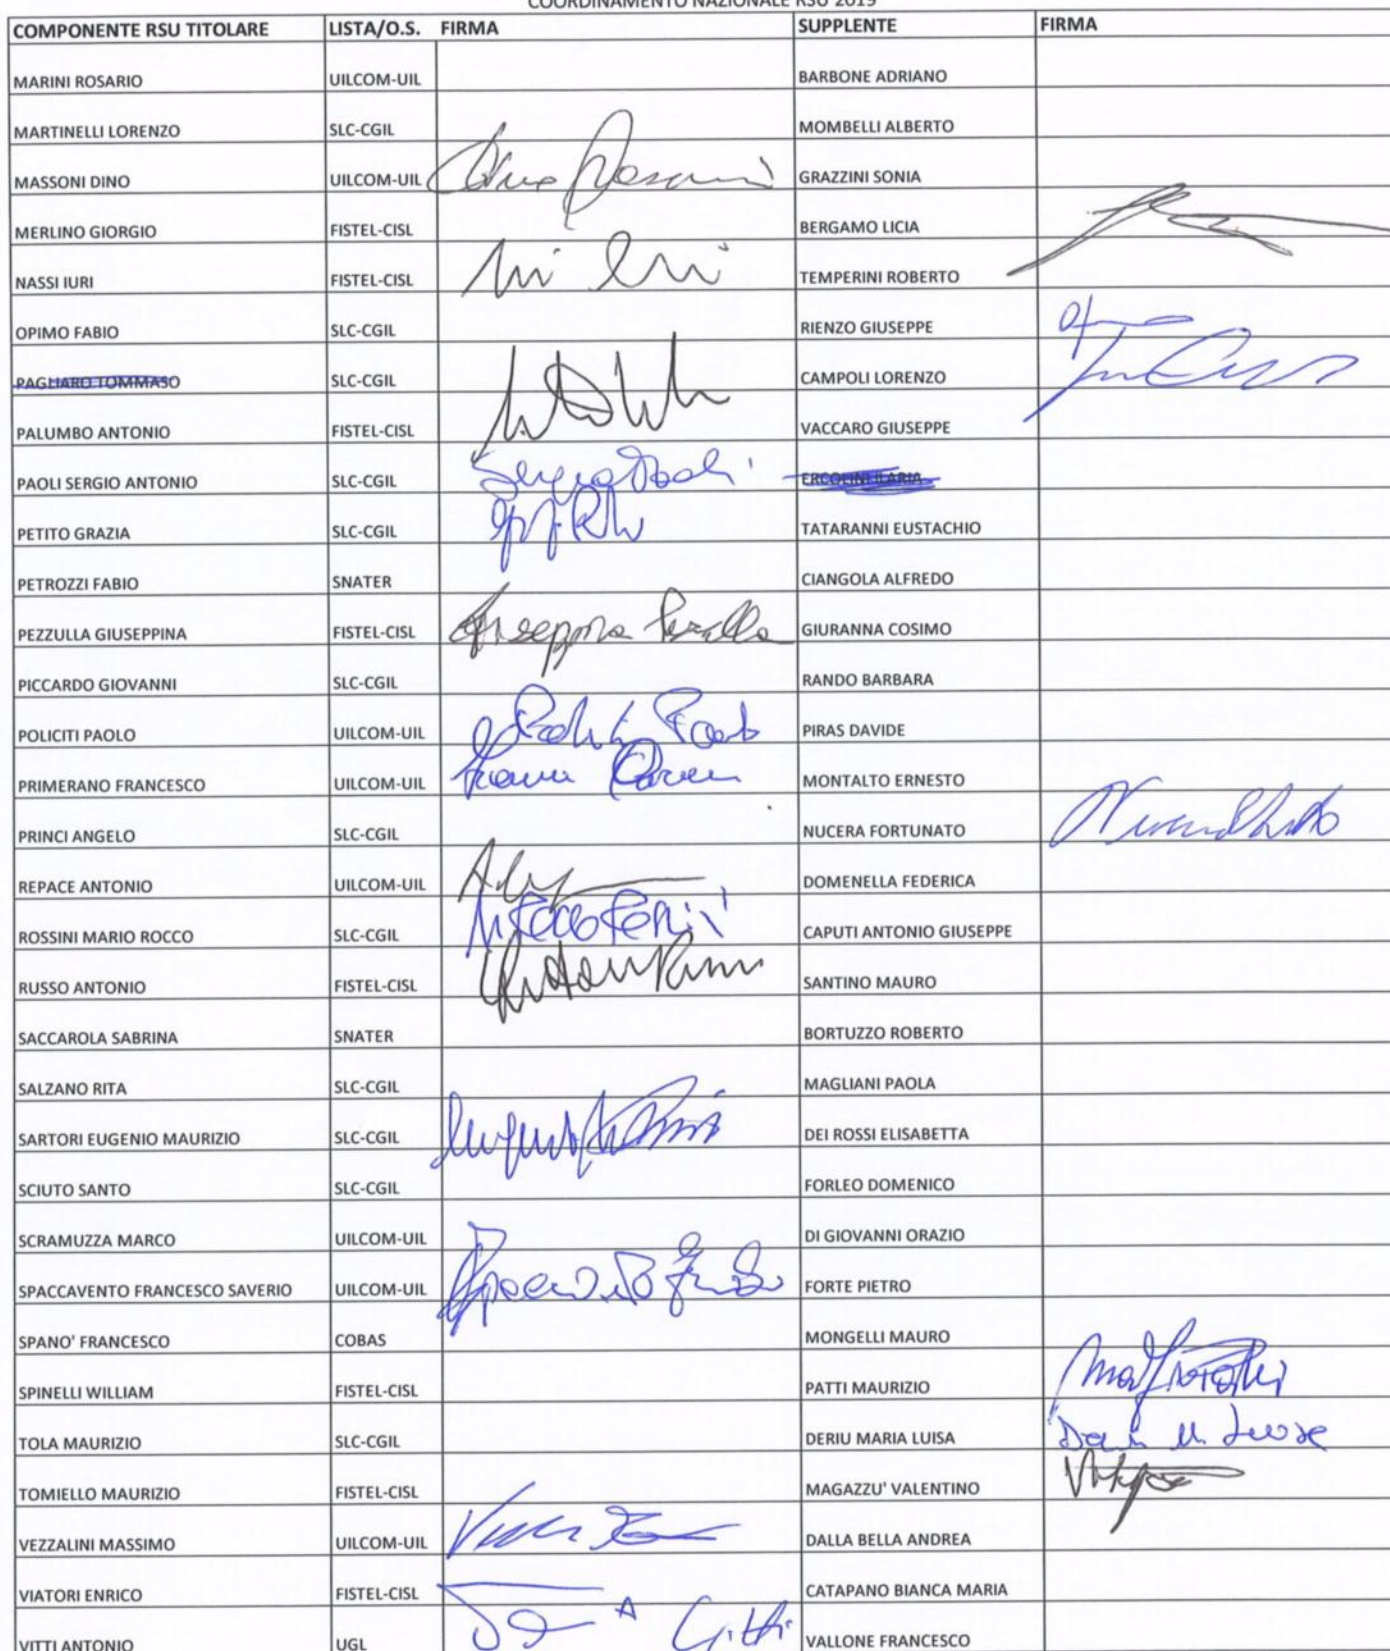 COORDINAMENTO NAZIONALE RSU 2019
COMPONENTE RSU TITOLARE LISTA/O.S. FIRMA SUPPLENTE FIRMA
MARINI ROSARIO UILCOM-UIL BARBONE ADRIANO
MARTINELLI LORENZO SLC-CGIL MOMBELLI ALBERTO
MASSONI DINO UILCOM-UIL GRAZZINI SONIA
MERLINO GIORGIO FISTEL-CISL BERGAMO LICIA
NASSI IURI FISTEL-CISL TEMPERINI ROBERTO
OPIMO FABIO SLC-CGIL RIENZO GIUSEPPE
PAGLIARO TOMMASO SLC-CGIL CAMPOLI LORENZO
PALUMBO ANTONIO FISTEL-CISL VACCARO GIUSEPPE
PAOLI SERGIO ANTONIO SLC-CGIL Sergio Paoli ERCOLINI ILARIA
PETITO GRAZIA SLC-CGIL TATARANNI EUSTACHIO
PETROZZI FABIO SNATER CIANGOLA ALFREDO
PEZZULLA GIUSEPPINA FISTEL-CISL Giuseppina Pezzulla GIURANNA COSIMO
PICCARDO GIOVANNI SLC-CGIL RANDO BARBARA
POLICITI PAOLO UILCOM-UIL PIRAS DAVIDE
PRIMERANO FRANCESCO UILCOM-UIL MONTALTO ERNESTO
PRINCI ANGELO SLC-CGIL NUCERA FORTUNATO
REPACE ANTONIO UILCOM-UIL DOMENELLA FEDERICA
ROSSINI MARIO ROCCO SLC-CGIL CAPUTI ANTONIO GIUSEPPE
RUSSO ANTONIO FISTEL-CISL SANTINO MAURO
SACCAROLA SABRINA SNATER BORTUZZO ROBERTO
SALZANO RITA SLC-CGIL MAGLIANI PAOLA
SARTORI EUGENIO MAURIZIO SLC-CGIL DEI ROSSI ELISABETTA
SCIUTO SANTO SLC-CGIL FORLEO DOMENICO
SCRAMUZZA MARCO UILCOM-UIL DI GIOVANNI ORAZIO
SPACCAVENTO FRANCESCO SAVERIO UILCOM-UIL FORTE PIETRO
SPANO' FRANCESCO COBAS MONGELLI MAURO
SPINELLI WILLIAM FISTEL-CISL PATTI MAURIZIO
TOLA MAURIZIO SLC-CGIL DERIU MARIA LUISA
TOMIELLO MAURIZIO FISTEL-CISL MAGAZZU' VALENTINO
VEZZALINI MASSIMO UILCOM-UIL DALLA BELLA ANDREA
VIATORI ENRICO FISTEL-CISL CATAPANO BIANCA MARIA
VITTI ANTONIO UGL VALLONE FRANCESCO